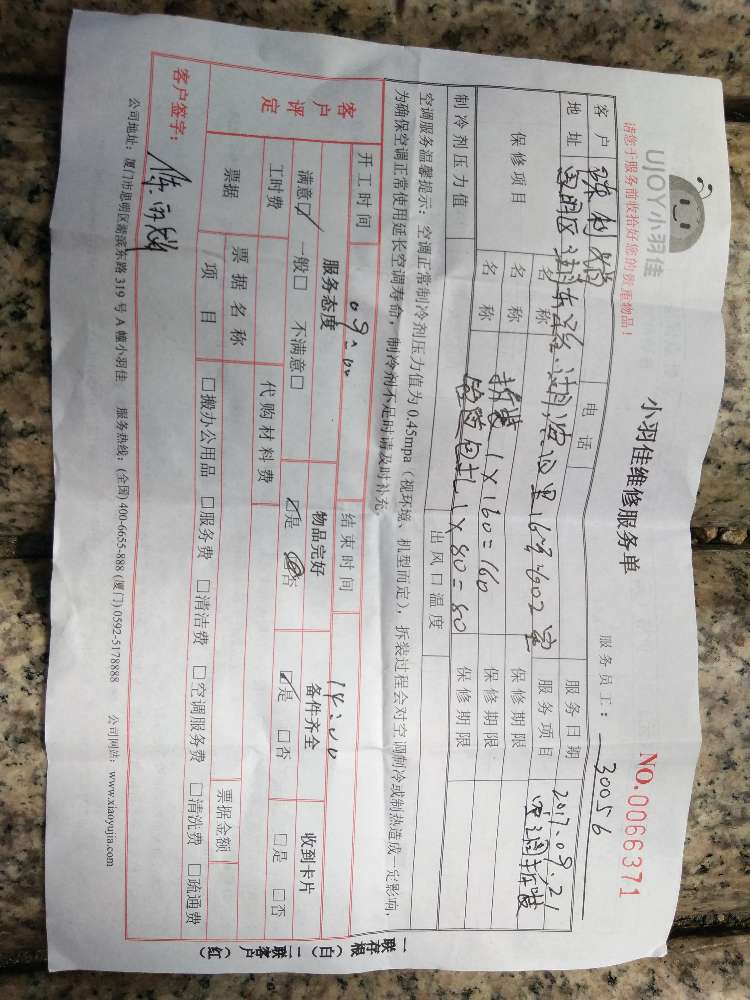 UJOY小羽佳
请您于服务前收拾好您的贵重物品!
小羽佳维修服务单
NO.0066371
服务员工: 30056
客户 电话 服务日期 2017.09.21
地址 思明区 里16号602室 服务项目 空调拆装
保修项目 名称 保修期限
名称 拆装1×160=160 保修期限
名称 包扎1×80=80 保修期限
制冷剂压力值 出风口温度
空调服务温馨提示:空调正常制冷剂压力值为0.45mpa(视环境、机型而定),拆装过程会对空调制冷或制热造成一定影响,
为确保空调正常使用延长空调寿命,制冷剂不足时请及时补充。
开工时间 09:00 结束时间 14:00
客户评定
服务态度 物品完好 备件齐全 收到卡片
满意☑ 一般□ 不满意□ ☑是 否 ☑是 □否 □是 □否
工时费 代购材料费
票据 票据名称 票据金额
项目 □搬办公用品 □服务费 □清洁费 □空调服务费 □清洗费 □疏通费
客户签字:
公司地址:厦门市思明区湖滨东路319号A幢小羽佳 服务热线:(全国)400-6655-888 (厦门)0592-5178888 公司网站:www.xiaoyujia.com
一联存根(白) 二联客户(红)